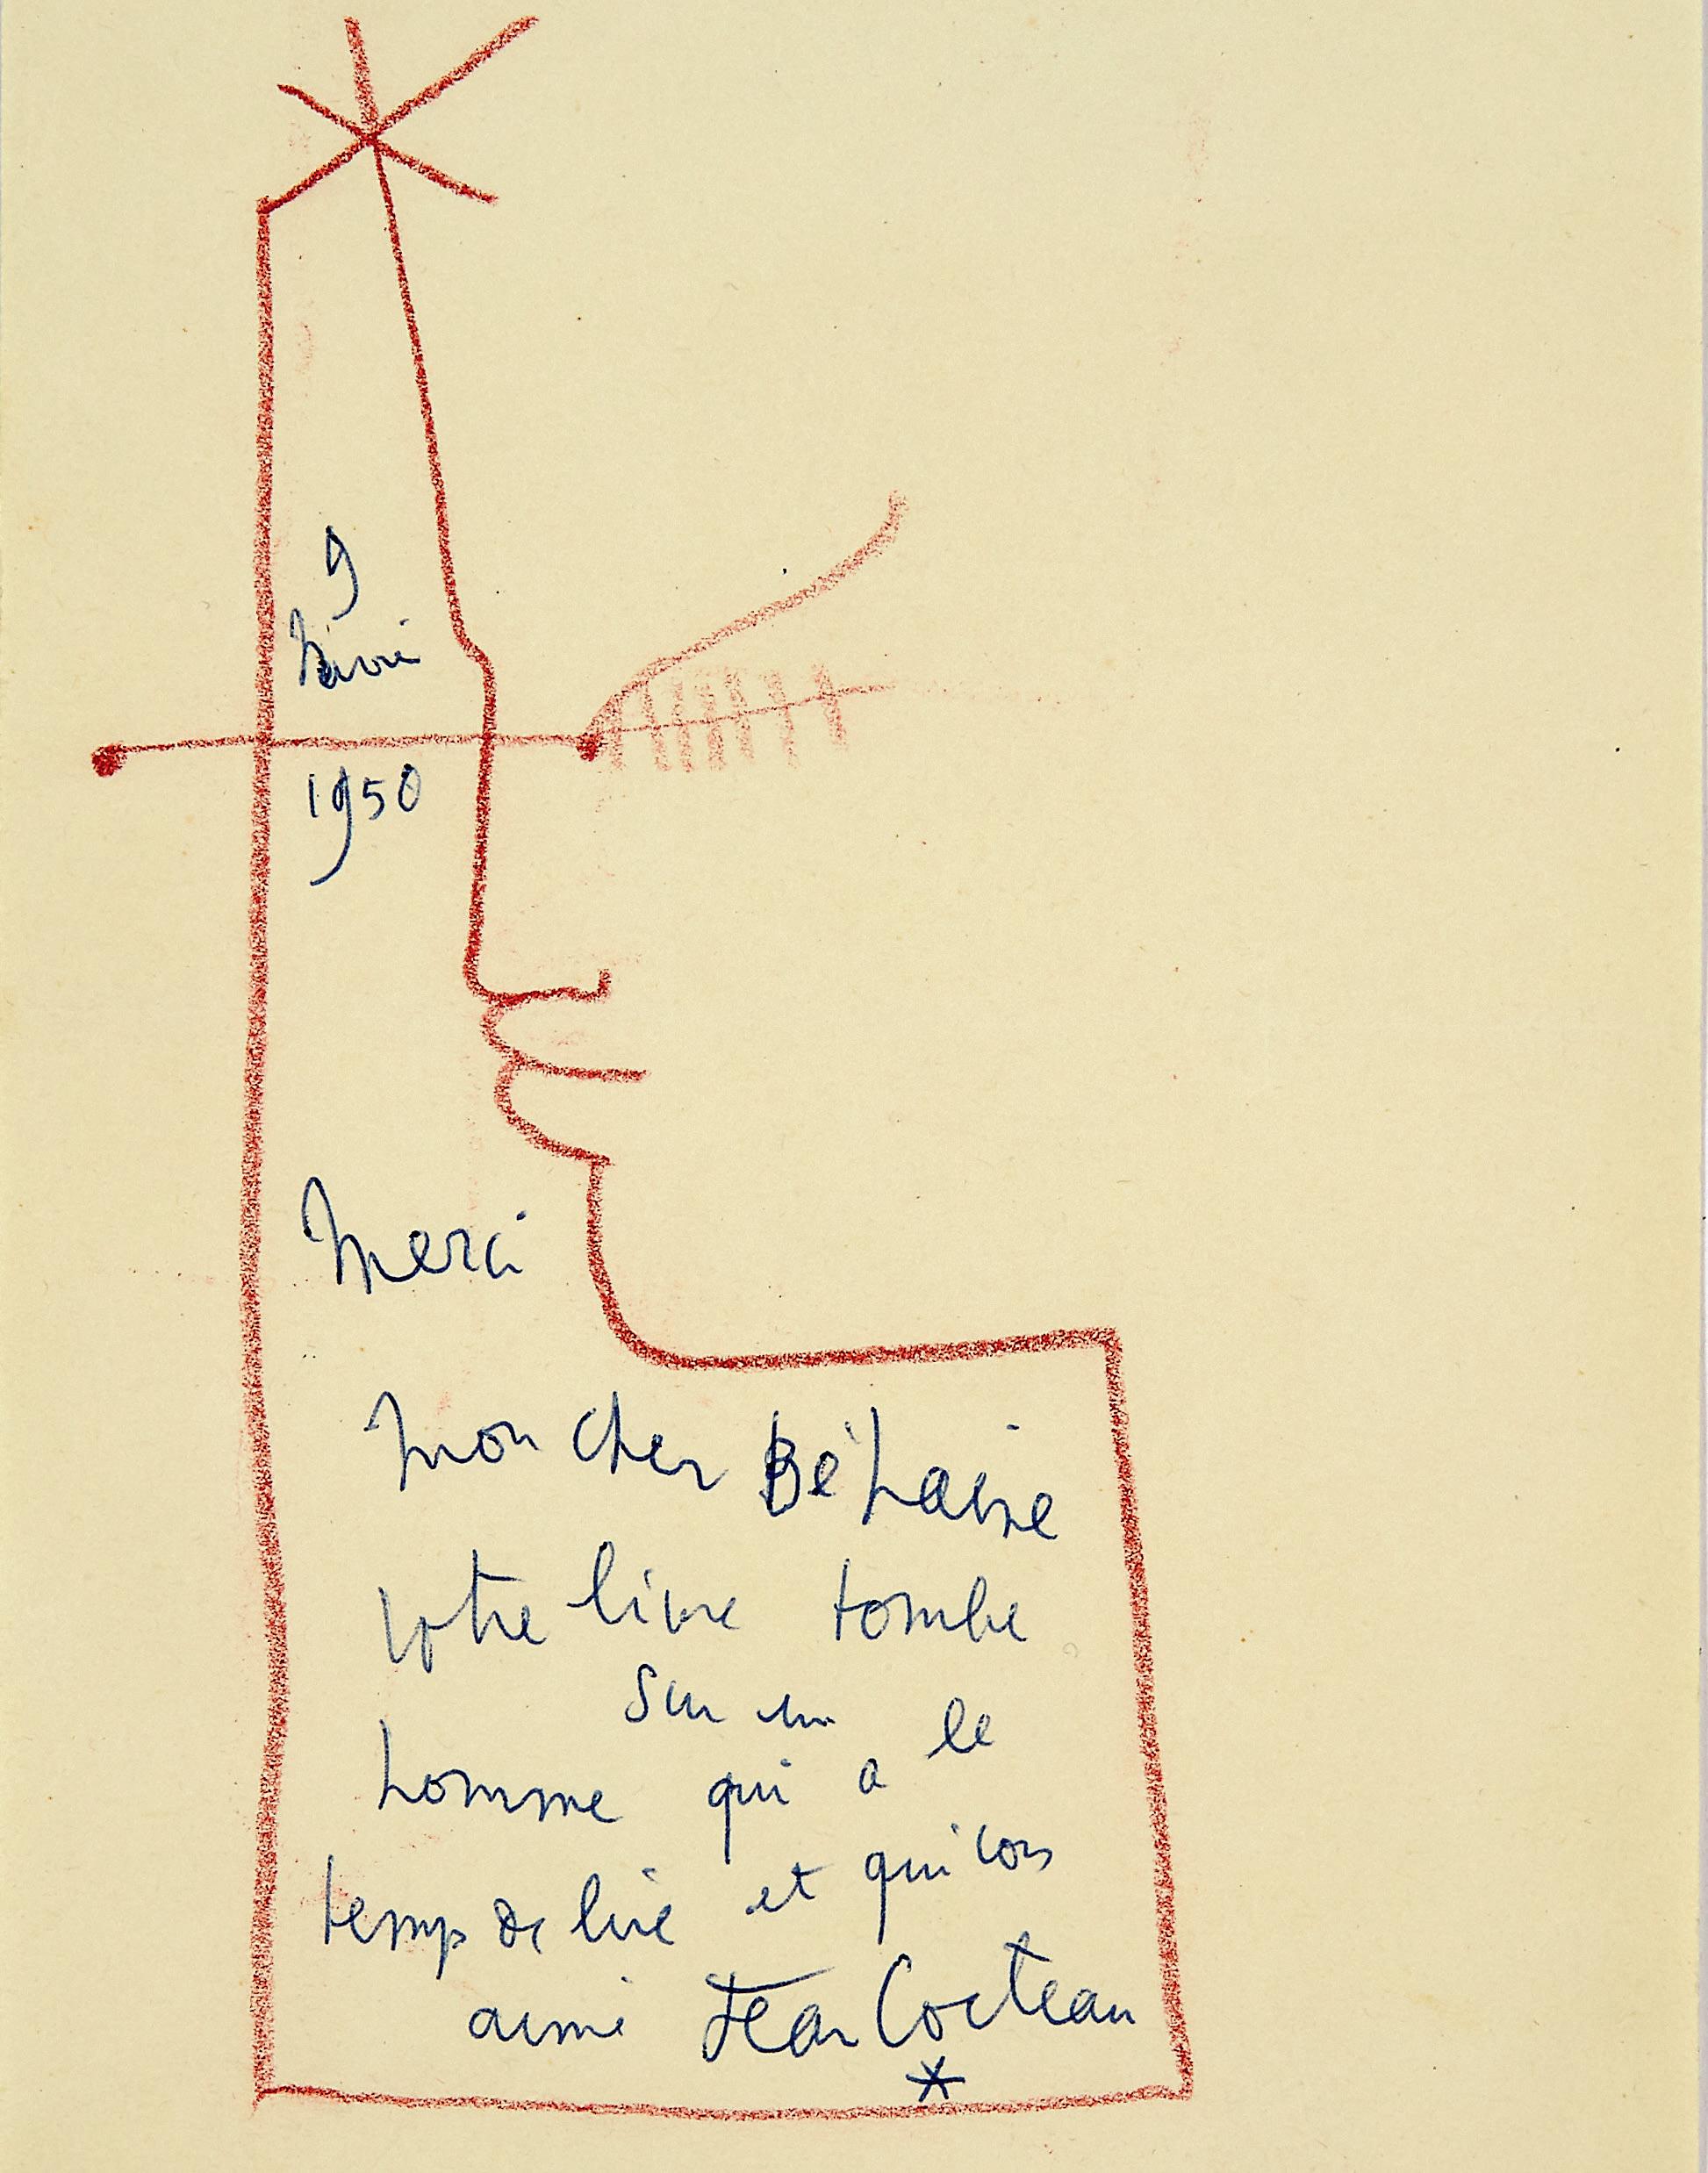 9
1950
Merci
mon cher Béhaine
votre livre tombe
sur un
homme qui a le
temps de lire et qui vous
aime Jean Cocteau